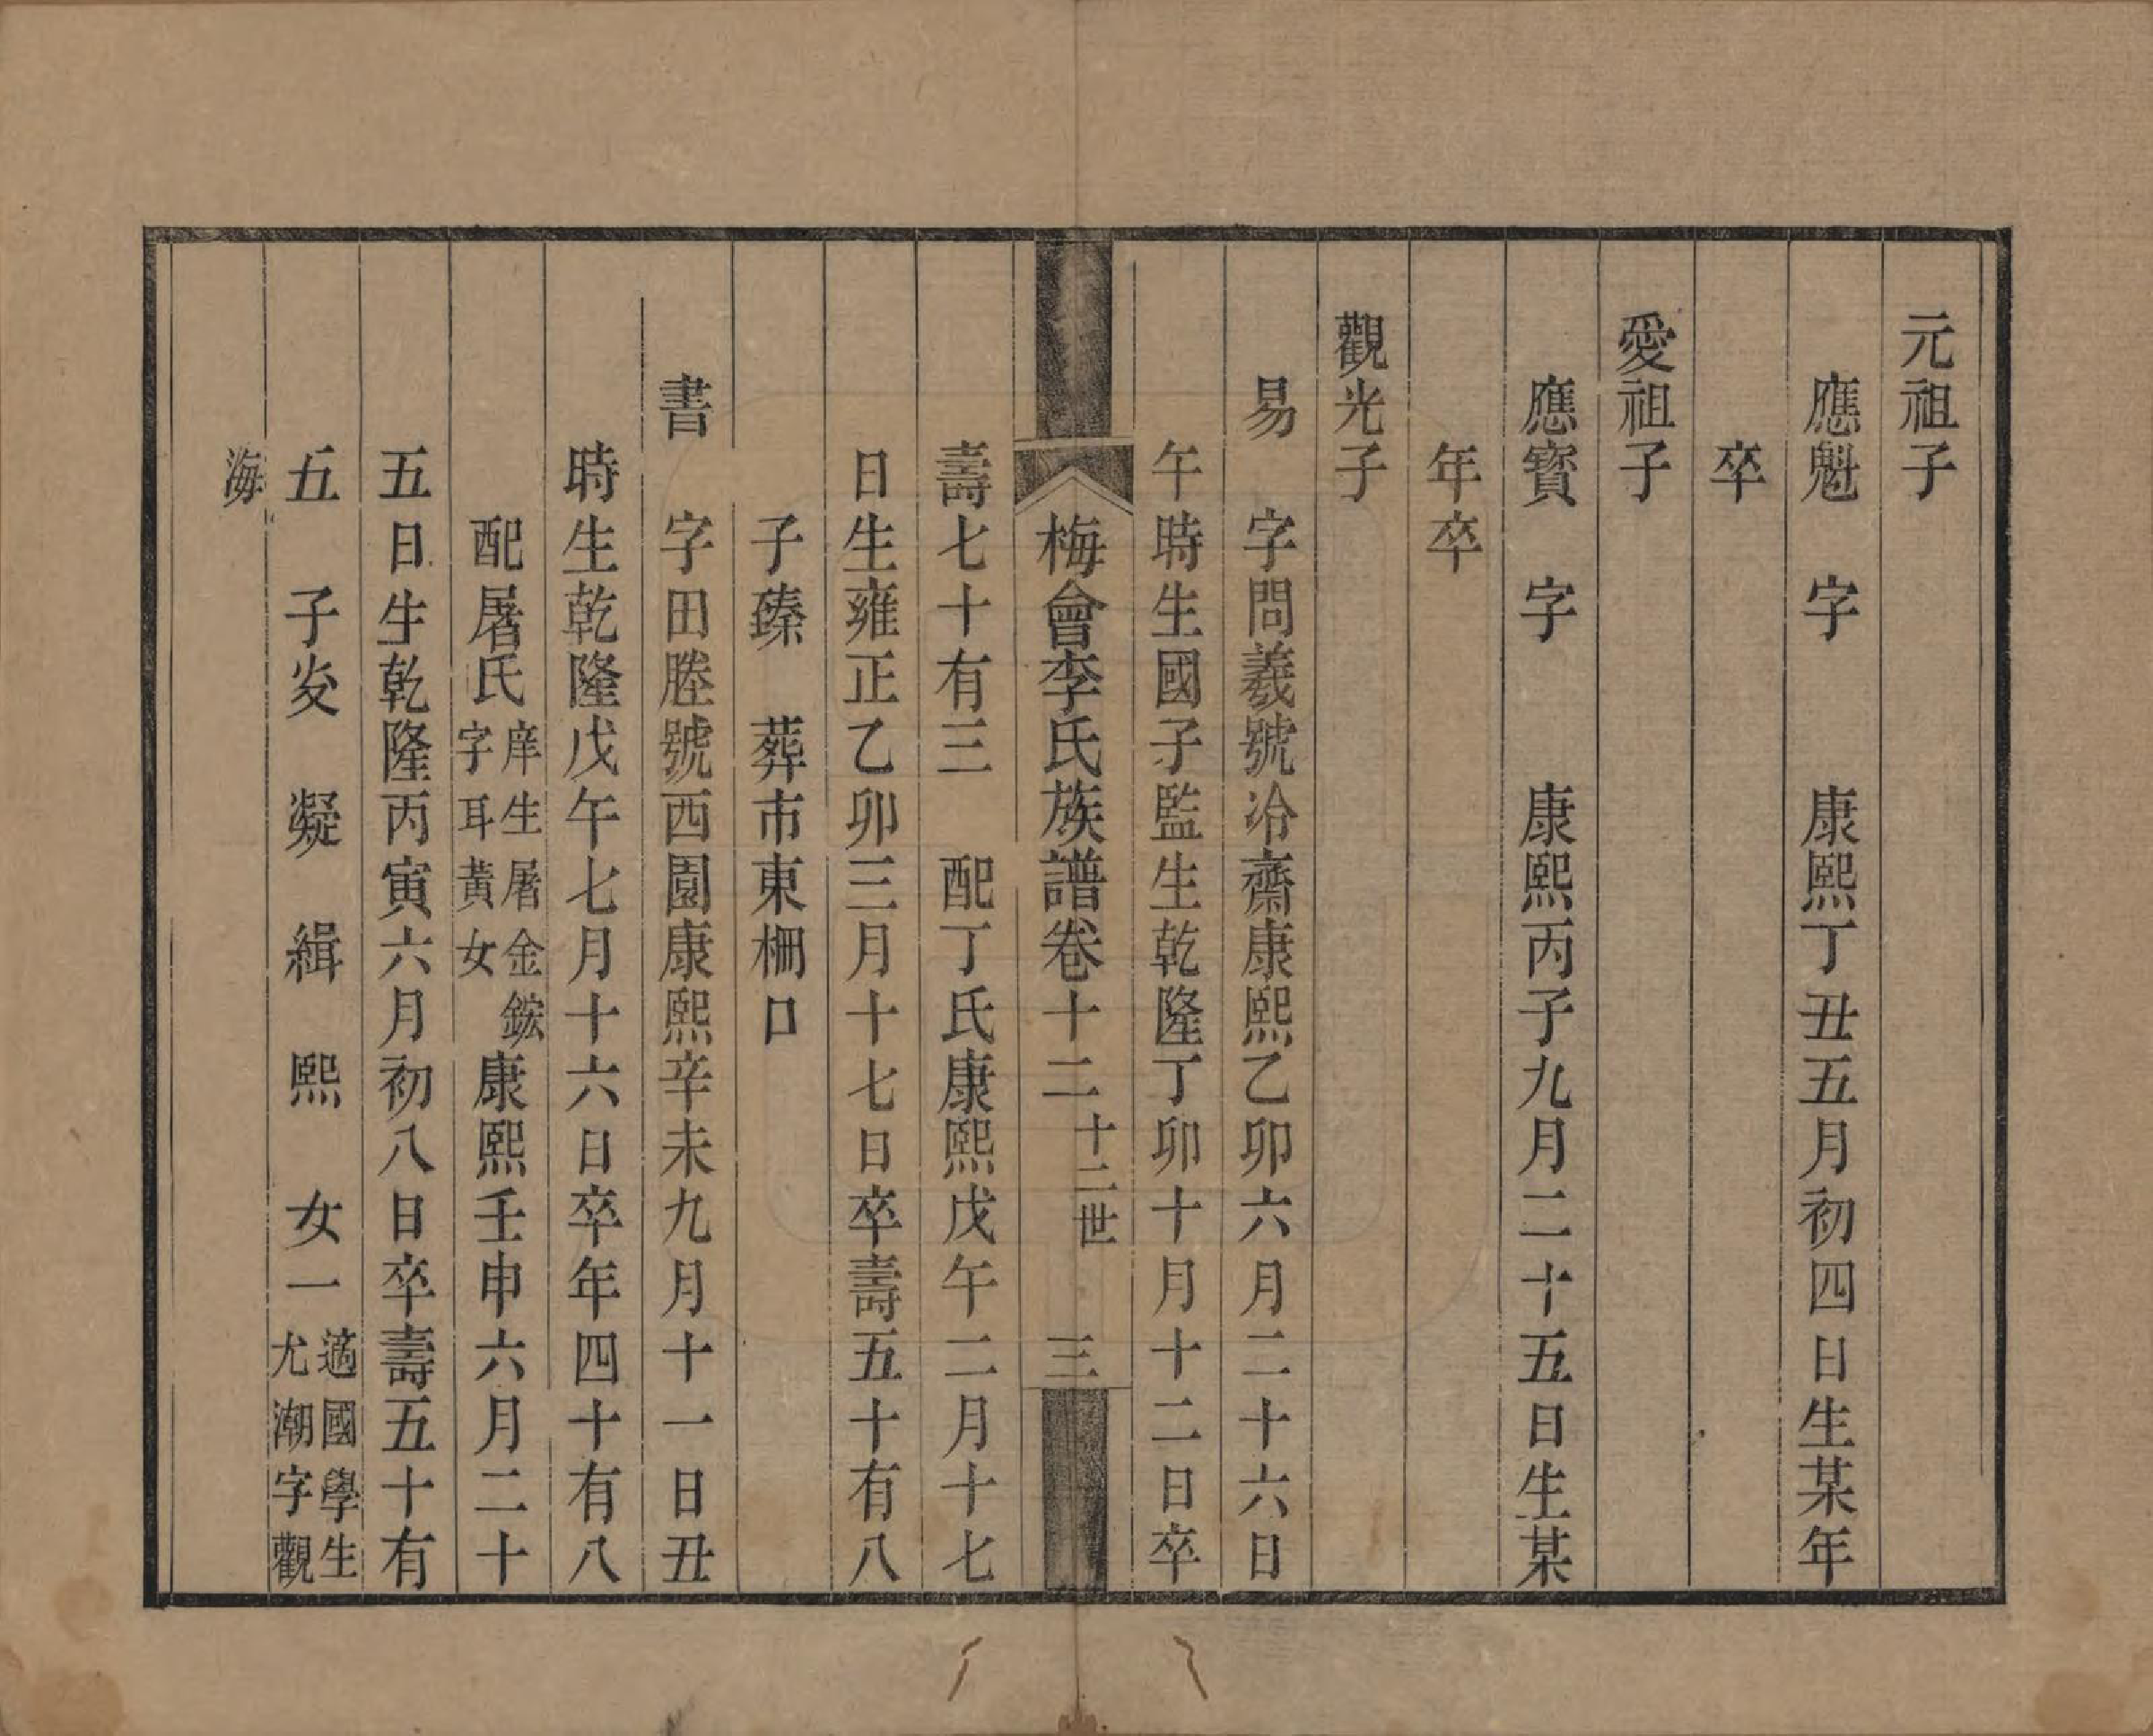 元祖子
應魁　字　　康熙丁丑五月初四日生某年
卒
愛祖子
應寶　字　　康熙丙子九月二十五日生某
年卒
觀光子
易　字問羲號冶齋康熙乙卯六月二十六日
午時生國子監生乾隆丁卯十月十二日卒
梅會李氏族譜卷十二 十二世　三
壽七十有三　配丁氏康熙戊午二月十七
日生雍正乙卯三月十七日卒壽五十有八
子臻　葬市東柵口
書　字田塍號西園康熙辛未九月十一日丑
時生乾隆戊午七月十六日卒年四十有八
配屠氏庠生屠金鋐字耳黃女康熙壬申六月二十
五日生乾隆丙寅六月初八日卒壽五十有
五　子炗　凝　緝　熙　女一適國學生尤潮字觀
海